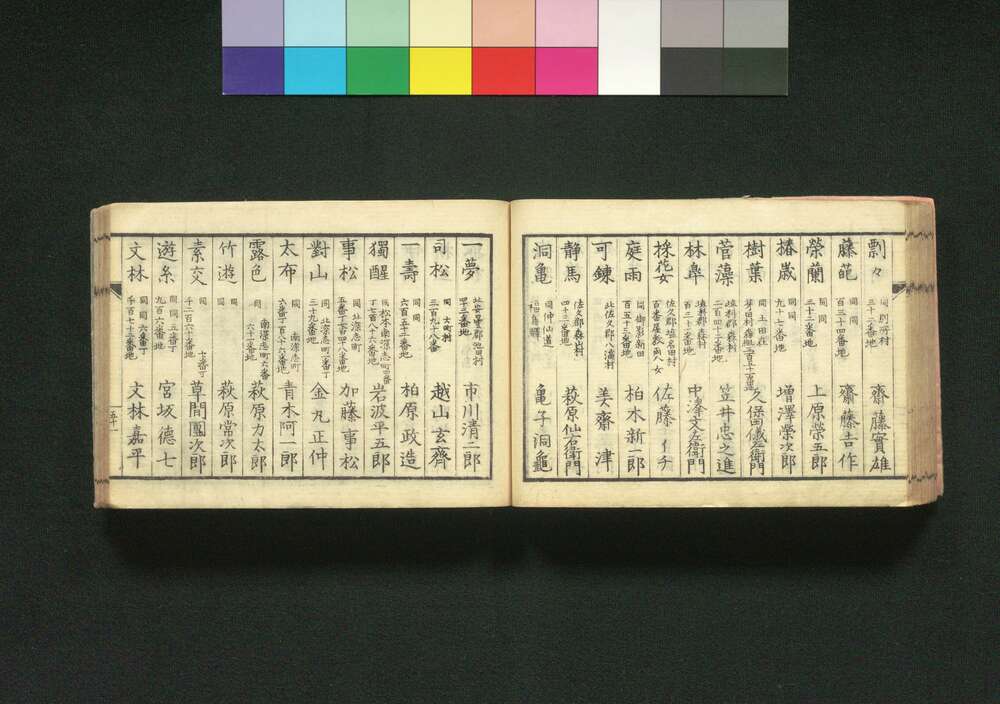 剽々 同 別所村 三十二番地 齋藤實雄
藤範 同 同 百三十四番地 齋藤吉作
榮蘭 同 同 三十二番地 上原榮五郎
椿歳 同 同 九十七番地 増澤榮次郎
樹葉 同 上田在 久保田儀左衛門
菅藻 埴科郡森村 二百四十二番地 笠井忠之進
林皐 埴科郡森村 百二十二番地 中澤文左衛門
採花女 佐久郡塩名田村 佐藤イチ
庭雨 同 御影新田 百五十三番地 柏木新一郎
可錬 北佐久郡八満村 美齋津
静馬 佐久郡森山村 四十三番地 萩原仙右衛門
洞亀 同 仲仙道 亀子洞龜
一夢 北安曇郡池田村 四十三番地 市川清三郎
司松 同 大町村 三百九十八番 越山玄齊
一壽 同 同 六百五十二番地 柏原政造
獨醒 同 松本南深志町四番丁七百八十六番地 岩波平五郎
事松 同 北深志町五番丁七百四十八番地 加藤事松
對山 同 北深志町二番丁三十九番地 金丸正仲
太布 同 南深志町六番丁百八十六番地 青木阿一郎
露色 同 南深志町六番丁六十二番地 萩原力太郎
竹遊 同 同 萩原常次郎
素交 同 同 七番丁千二百六十番地 草間團次郎
遊糸 同 同 五番丁九百六番地 宮坂徳七
文林 同 同 六番丁千百七十三番地 文林嘉平
五十一